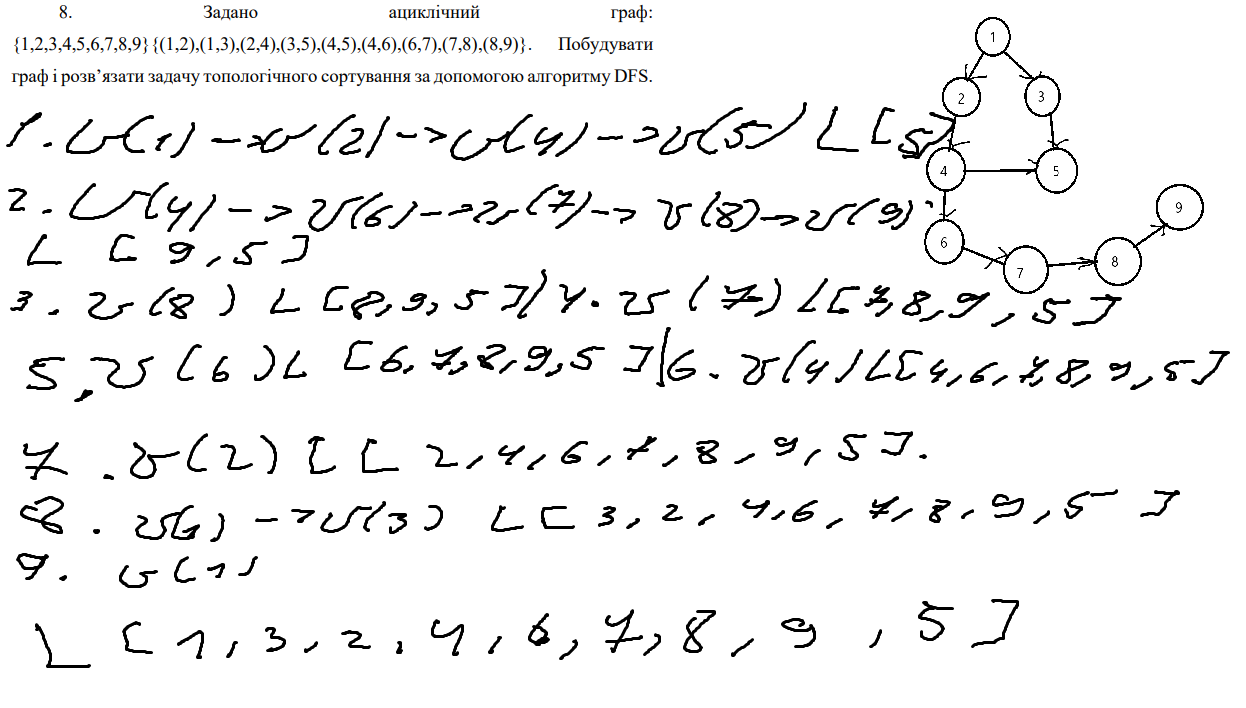 8. Задано ациклічний граф:
{1,2,3,4,5,6,7,8,9}{(1,2),(1,3),(2,4),(3,5),(4,5),(4,6),(6,7),(7,8),(8,9)}. Побудувати
граф і розв’язати задачу топологічного сортування за допомогою алгоритму DFS.
1
2 3
4 5
6 7 8 9
1. v(1) -> v(2) -> v(4) -> v(5) L [5]
2. v(4) -> v(6) -> v(7) -> v(8) -> v(9)
L [9,5]
3. v(8) L [8,9,5] | 4. v(7) L[7,8,9,5]
5, v(6) L [6,7,8,9,5] | 6. v(4) L[4,6,7,8,9,5]
7. v(2) [ [2,4,6,7,8,9,5].
8. v(1) -> v(3) L [3,2,4,6,7,8,9,5]
9. v(1)
L [1,3,2,4,6,7,8,9,5]